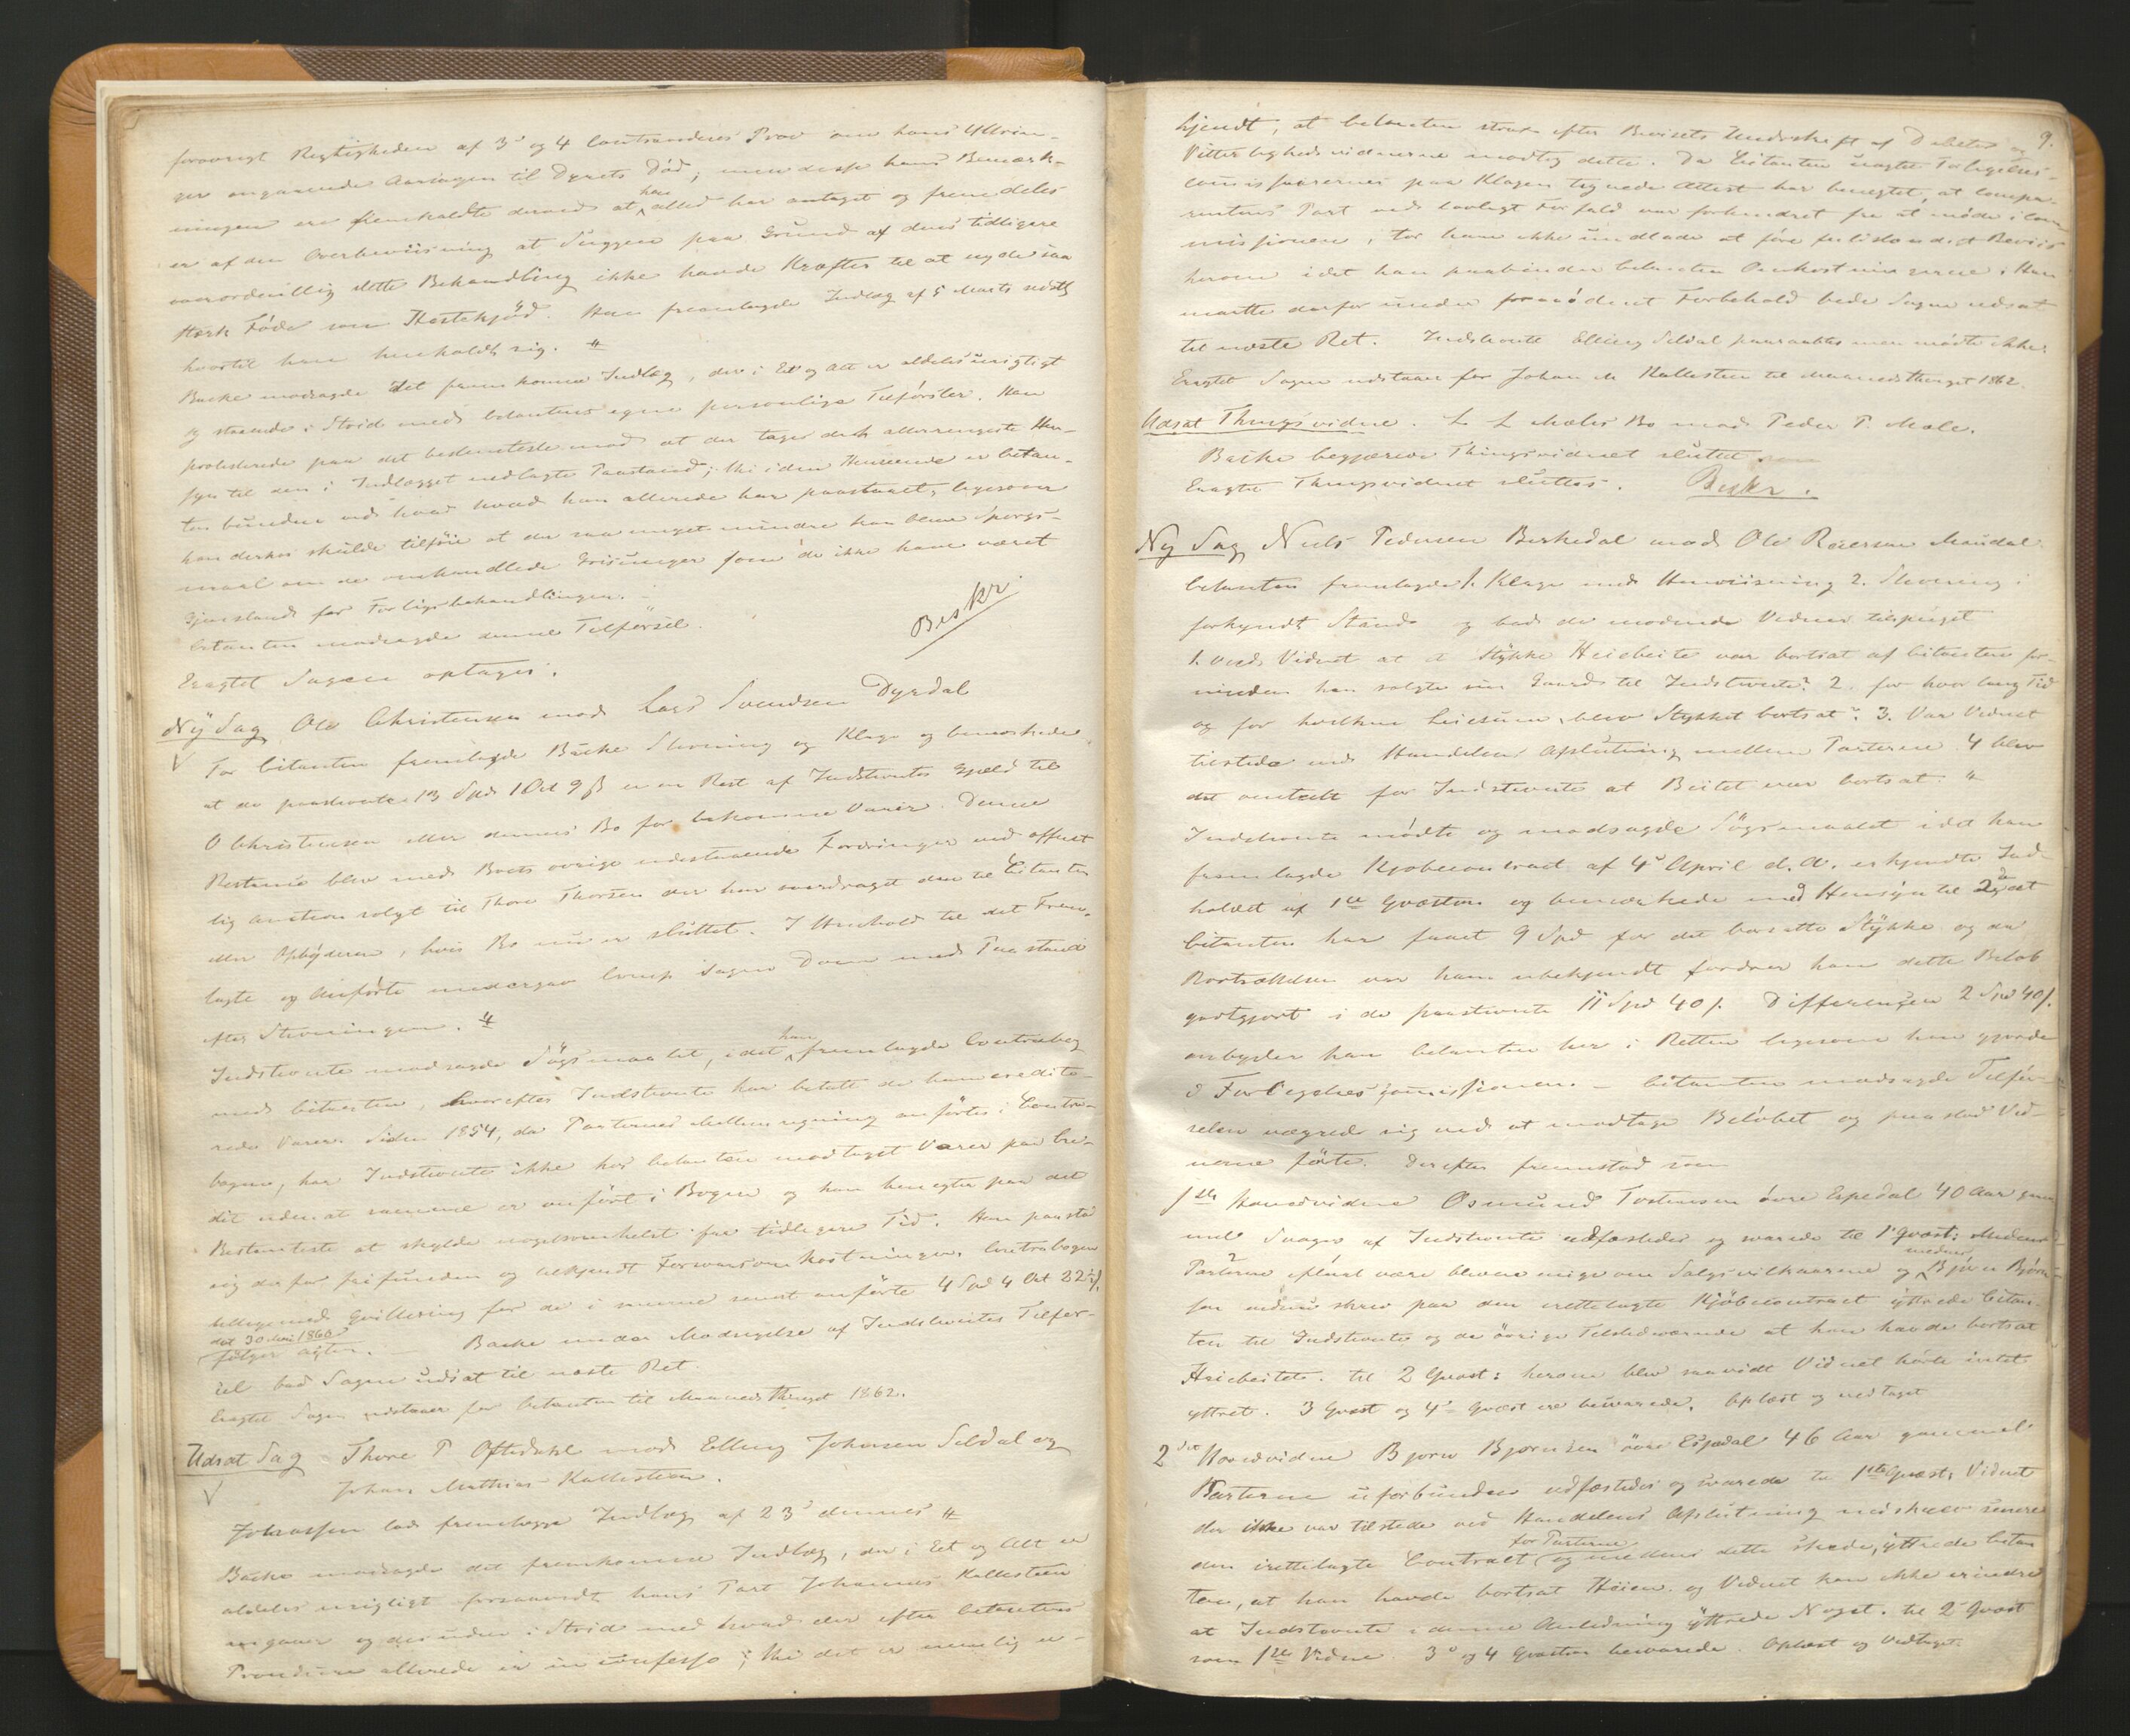 forøvrigt Rigtigheden af 3d og 4 Contravidners Prov om hans Yttrin-
ger angaaende Aarsagen til Dyrets Død; men disse hans Bemærk-
ninger ere fremkaldte derved at han altid har antaget og fremdeles
er af den Overbeviisning at Suggen paa Grund af dens tidligere
uforordentlig slette Behandling ikke havde Kræfter til at nyde saa
stærk Føde som Hestekjød. Han fremlagde Indlæg af 5 Marts
hvortil han henholdt sig. #
Backe modsagde det fremkomne Indlæg, der i Et og Alt er aldeles urigtigt
og staaende i Strid med Citantens egne personlige Tilførsler. Han
protesterede paa det bestemteste mod at der tages det allerringeste Hen-
syn til den i Indlægget nedlagte Paastand; thi i den Henseende er Citan-
ten bunden ved hvad han allerede har paastaaet, ligesom
han derhos skulde tilføie at der saa meget mindre kan blive Spørgs-
maal om de omhandlede Grisunger som de ikke have været
Gjenstand for Forligsbehandlingen.
Citanten modsagde denne Tilførsel.
Beskr
Eragtet Sagen optages.
Ny Sag Ole Christensen mod Lars Svendsen Dyrdal
For Citanten fremlagde Backe Stevning og Klage og bemærkede
at de paastevnte 13 Spd 1 Ort 9 ß er en Rest af Indstevntes Gjæld til
O Christensen eller dennes Bo for bekomne Varer. Denne
Restance blev med Boets øvrige udestaaende Fordringer ved offent
lig Auction solgt til Thore Thorsen der har overdraget den til Citanten
eller Opbyderen, hvis Bo nu er sluttet. I Henhold til det Frem-
lagte og Anførte undergav Comp. Sagen Dom med Paastand
efter Stevningen. #
Indstevnte modsagde Søgsmaalet, idet han fremlagde Contrabog
med Citanten, hvorefter Indstevnte har betalt de ham credite-
rede Varer. Siden 1854, da Parternes Mellemregning anførtes i Contra-
bogen, har Indstevnte ikke hos Citanten modtaget Varer paa Cre-
dit uden at samme er anført i Bogen og han benegter paa det
Bestemteste at skylde nogetsomhelst fra tidligere Tid. Han paastod
sig derfor frifunden og tilkjendt Forsvarsomkostninger. Contrabogen
tilligemed Qvittering for de i samme senest anførte 4 Spd 4 Ort 22½ ß
dat 30 Mai 1860
følger Acten. — Backe under Modsigelse af Indstevntes Tilfør-
sel bad Sagen udsat til næste Ret.
Eragtet Sagen udstaaer for Citanten til Maanedsthinget 1862.
Udsat Sag Thore P Oftedahl mod Elling Johnsen Seldal og
Johan Mathias Kallesteen.
Johnssen lod fremlægge Indlæg af 23d dennes #
Backe modsagde det fremkomne Indlæg, der i Et og Alt er
aldeles urigtigt forsaavidt hans Part Johannes Kallesteen
angaaer og desuden i Strid med hvad der efter Citantens
Proceduren allerede er in confesso; thi det er nemlig er-
9.
kjendt, at Citanten strax efter Bevisets Underskrift af Debitor og
Vitterlighedsvidnerne modtog dette. Da Citanten uagtet Forligelses-
commissairernes paa Klagen tegnede Attest har benegtet, at Compa-
rentens Part ved lovligt Forfald var forhindret fra at møde i Com
missionen, tør han ikke undlade at føre fuldstændigt Beviis
herom idet han paabinder Citanten Omkostningerne. Han
maatte derfor under fornødent Forbehold bede Sagen udsat
til næste Ret. Indstevnte Elling Seldal paaraabtes men mødte ikke.
Eragtet Sagen udstaaer for Johan M Kallesten til Maanedsthinget 1862.
Udsat Thingsvidne. L L Mæles Bo mod Peder P. Mæle.
Backe begjærede Thingsvidnet sluttet
Eragtet Thingsvidnet sluttes. Beskr.
Ny Sag Niels Pedersen Birkedal mod Ole Reiersen Maudal
Citanten fremlagde 1. Klage med Henviisning 2. Stevning i
forkyndt Stand og bad de mødende Vidner tilspurgt
1. Veed Vidnet at et Stykke Heiebeite var bortsat af Citanten for-
inden han solgte sin Gaard til Indstevnte? 2. for hvor lang Tid
og for hvilken Leiesum blev Stykket bortsat? 3. Var Vidnet
tilstede ved Handelens Afslutning mellem Parterne 4 blev
det omtalt for Indstevnte at Beitet var bortsat. "
Indstevnte mødte og modsagde Søgsmaalet idet han
fremlagde Kjøbecontract af 4d April d. A. erkjendte Ind-
holdet af 1ste Qvæstion og bemærkede med Hensyn til 2den at
Citanten har faaet 9 Spd for det bortsatte Stykke og da
Bortsættelsen var ham ubekjendt fordrer han dette Beløb
godtgjort i de paastevnte 11 Spd 40 ß. Differencen 2 Spd 40 ß.
anbyder han Citanten her i Retten ligesom han gjorde
i Forligelsescommissionen. — Citanten modsagde Tilfør-
selen vægrede sig ved at modtage Beløbet og paastod Vid-
nerne førte. Derefter fremstod som
1ste Hovedvidne Osmund Tostensen øvre Espedal 40 Aar gam
mel Svoger af Indstevnte edfæstedes og svarede til 1 Qvæst: Medens
Parterne efterat være blevne enige om Salgsvilkaarene og medens Bjørn Bjørn
sen nedskrev paa den irettelagte Kjøbecontract yttrede Citan-
ten til Indstevnte og de øvrige Tilstedeværende at han havde bortsat
Heiebeitet. til 2 Qvæst: herom blev saavidt Vidnet hørte intet
yttret. 3 Qvæst og 4de Qvæst ere besvarede. Oplæst og vedtaget
2det Hovedvidne Bjørn Bjørnsen øvre Espedal 46 Aar gammel
Parterne uforbunden edfæstedes og svarede til 1ste Qvæst: Vidnet
der ikke var tilstede ved Handelens Afslutning nedskrev senere
den irettelagte Contract for Parterne og medens dette skede, yttrede Citan
ten, at han havde bortsat Heien. og Vidnet kan ikke erindre
at Indstevnte i denne Anledning yttrede Noget. til 2 Qvæst
som 1ste Vidne. 3d og 4 Qvæstion besvarede. Oplæst og Vedtaget.